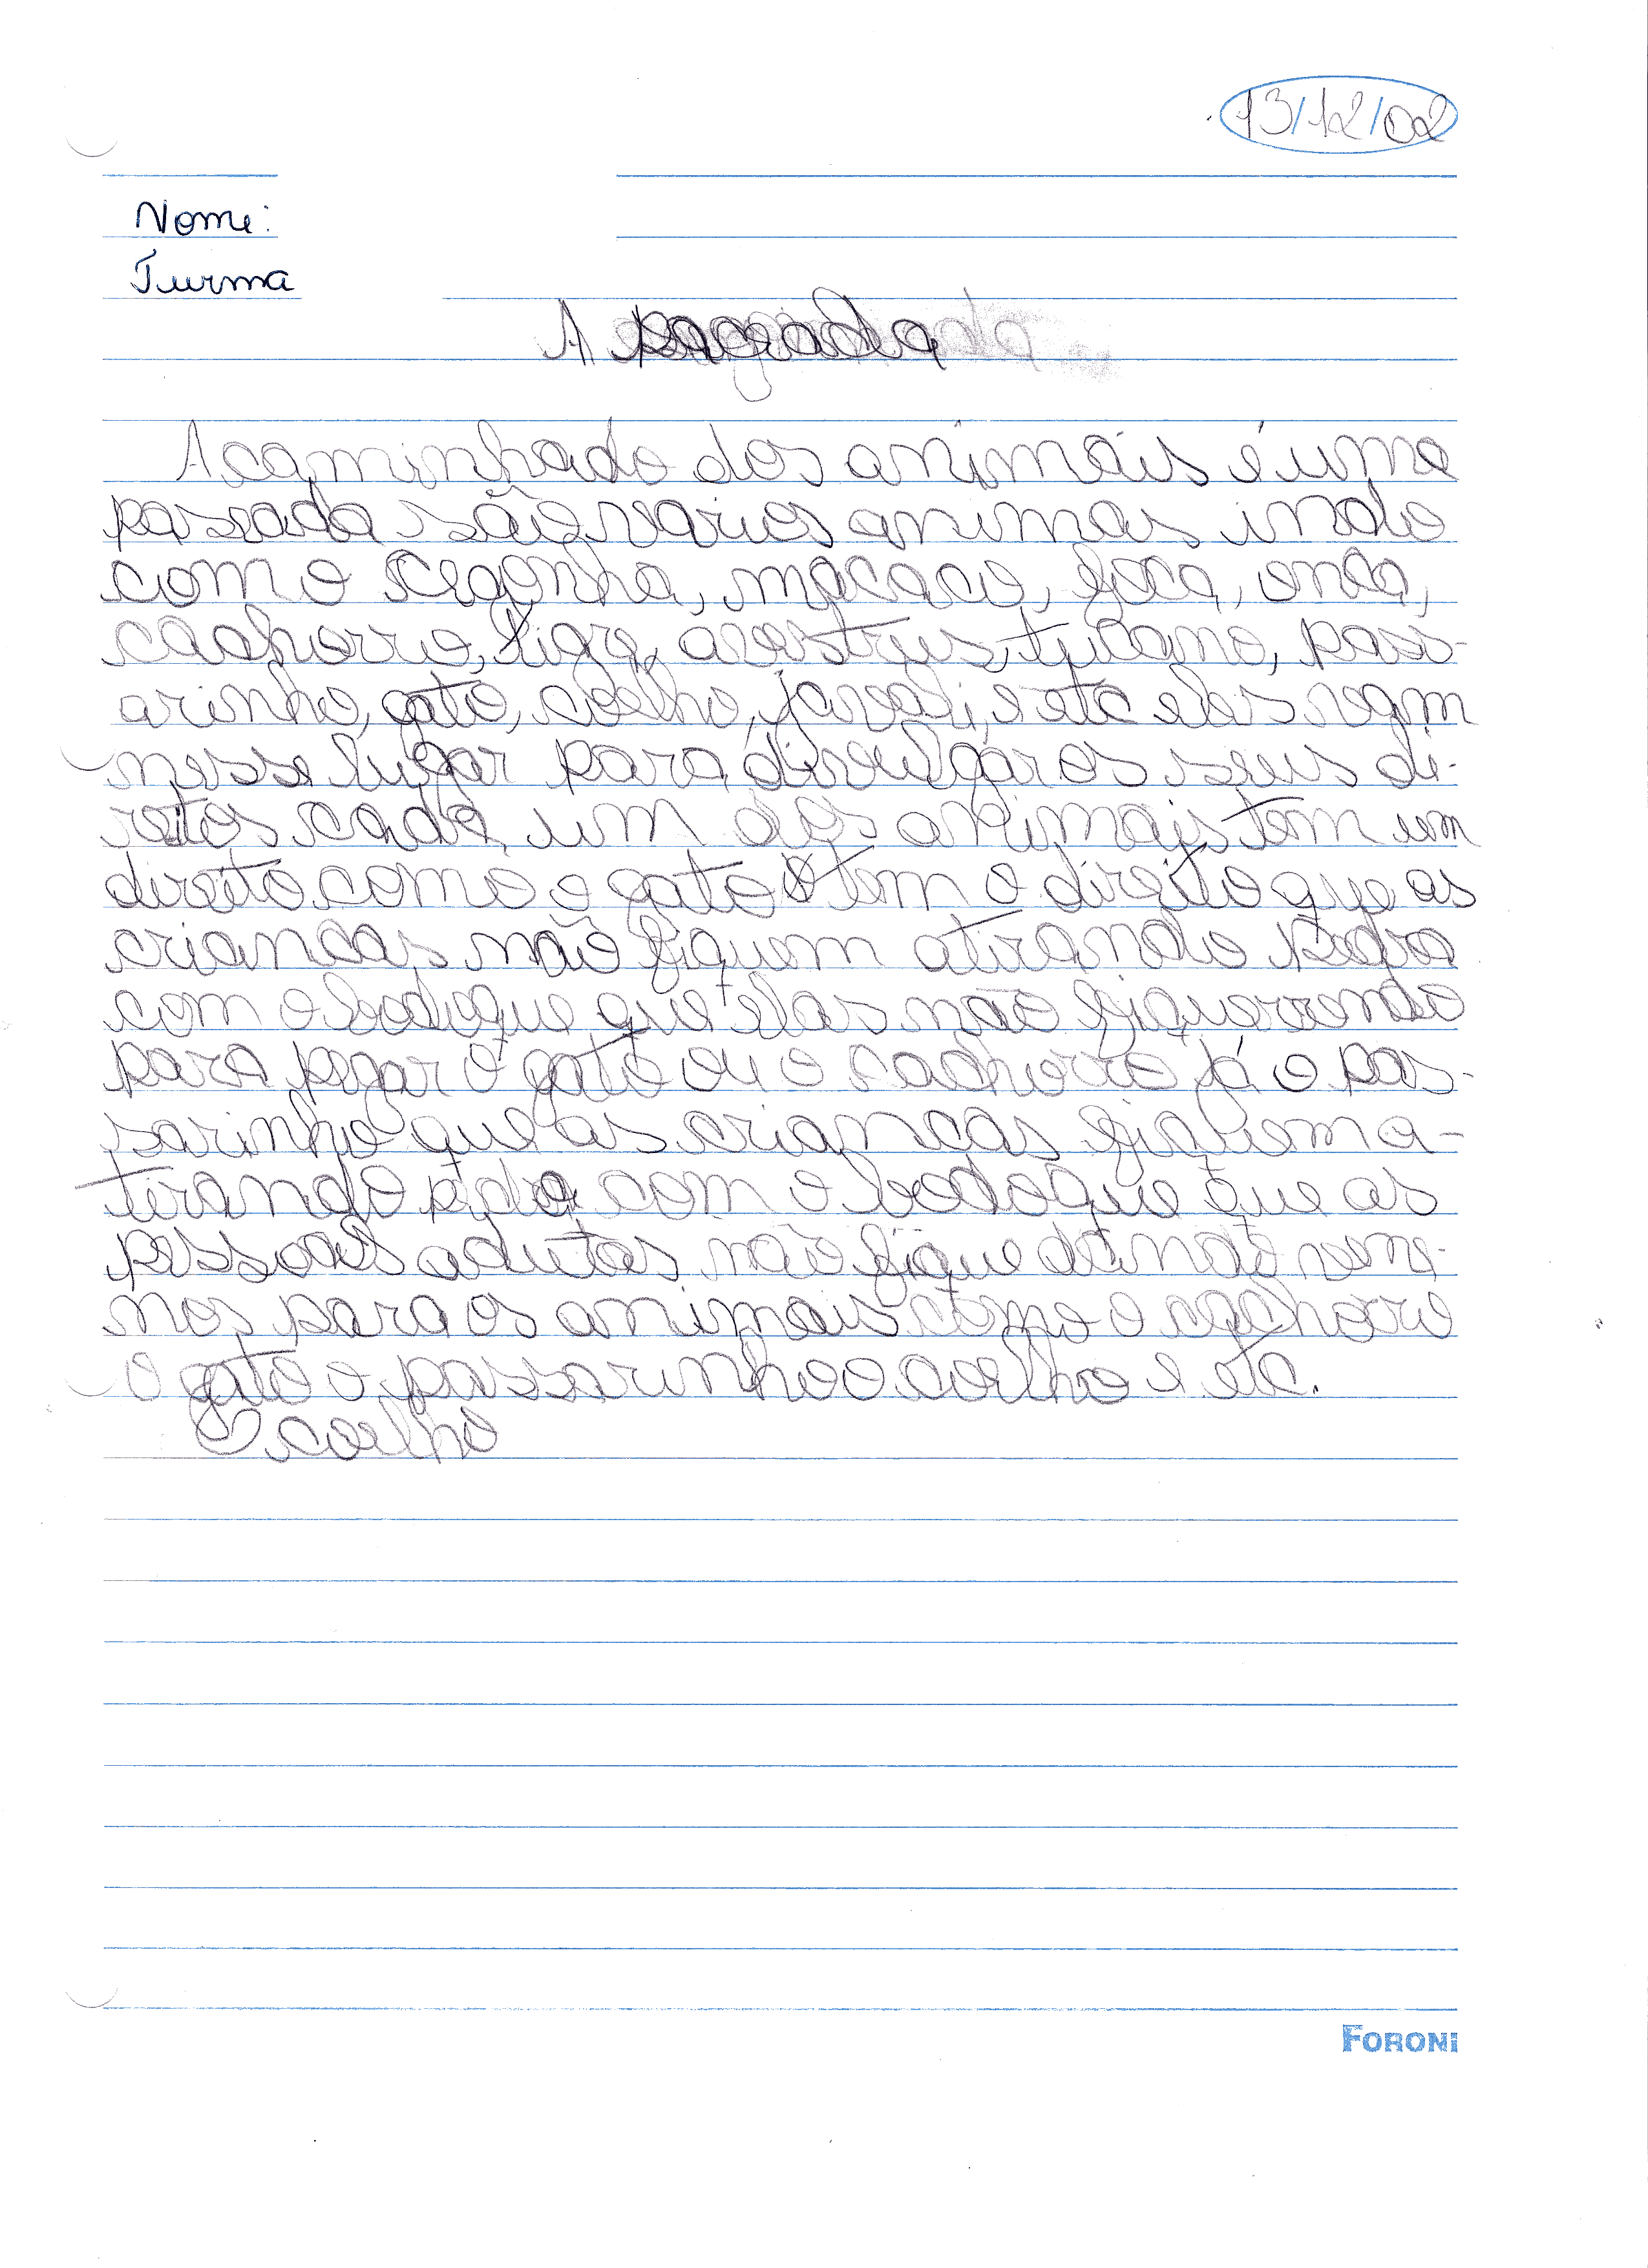 13/12/02
Nome:
Turma
A
A caminhada dos animáis é uma
passada são varios animas indo
como cegonha, macaco, foca, onca,
cachorro, tigre, avestrus, tucano, pass-
arinho, gato, coelho, javali, e etc eles vem
nesse lugar para divulgar os seus di-
reitos cada um dos animais tem um
direito como o gato tem o direito que as
criancas não fiquem atirando pedra
com o bodoque que elas não fique
para pegar o gato ou o cachorro já o pas-
sarinho que as criancas fiquem a-
tirando pdra com o bodoque que as
pessoas adutas não fique dando vene-
nos para os animais como o cachorro
o gato o passarinho o coelho e etc.
O coelho
FORONI